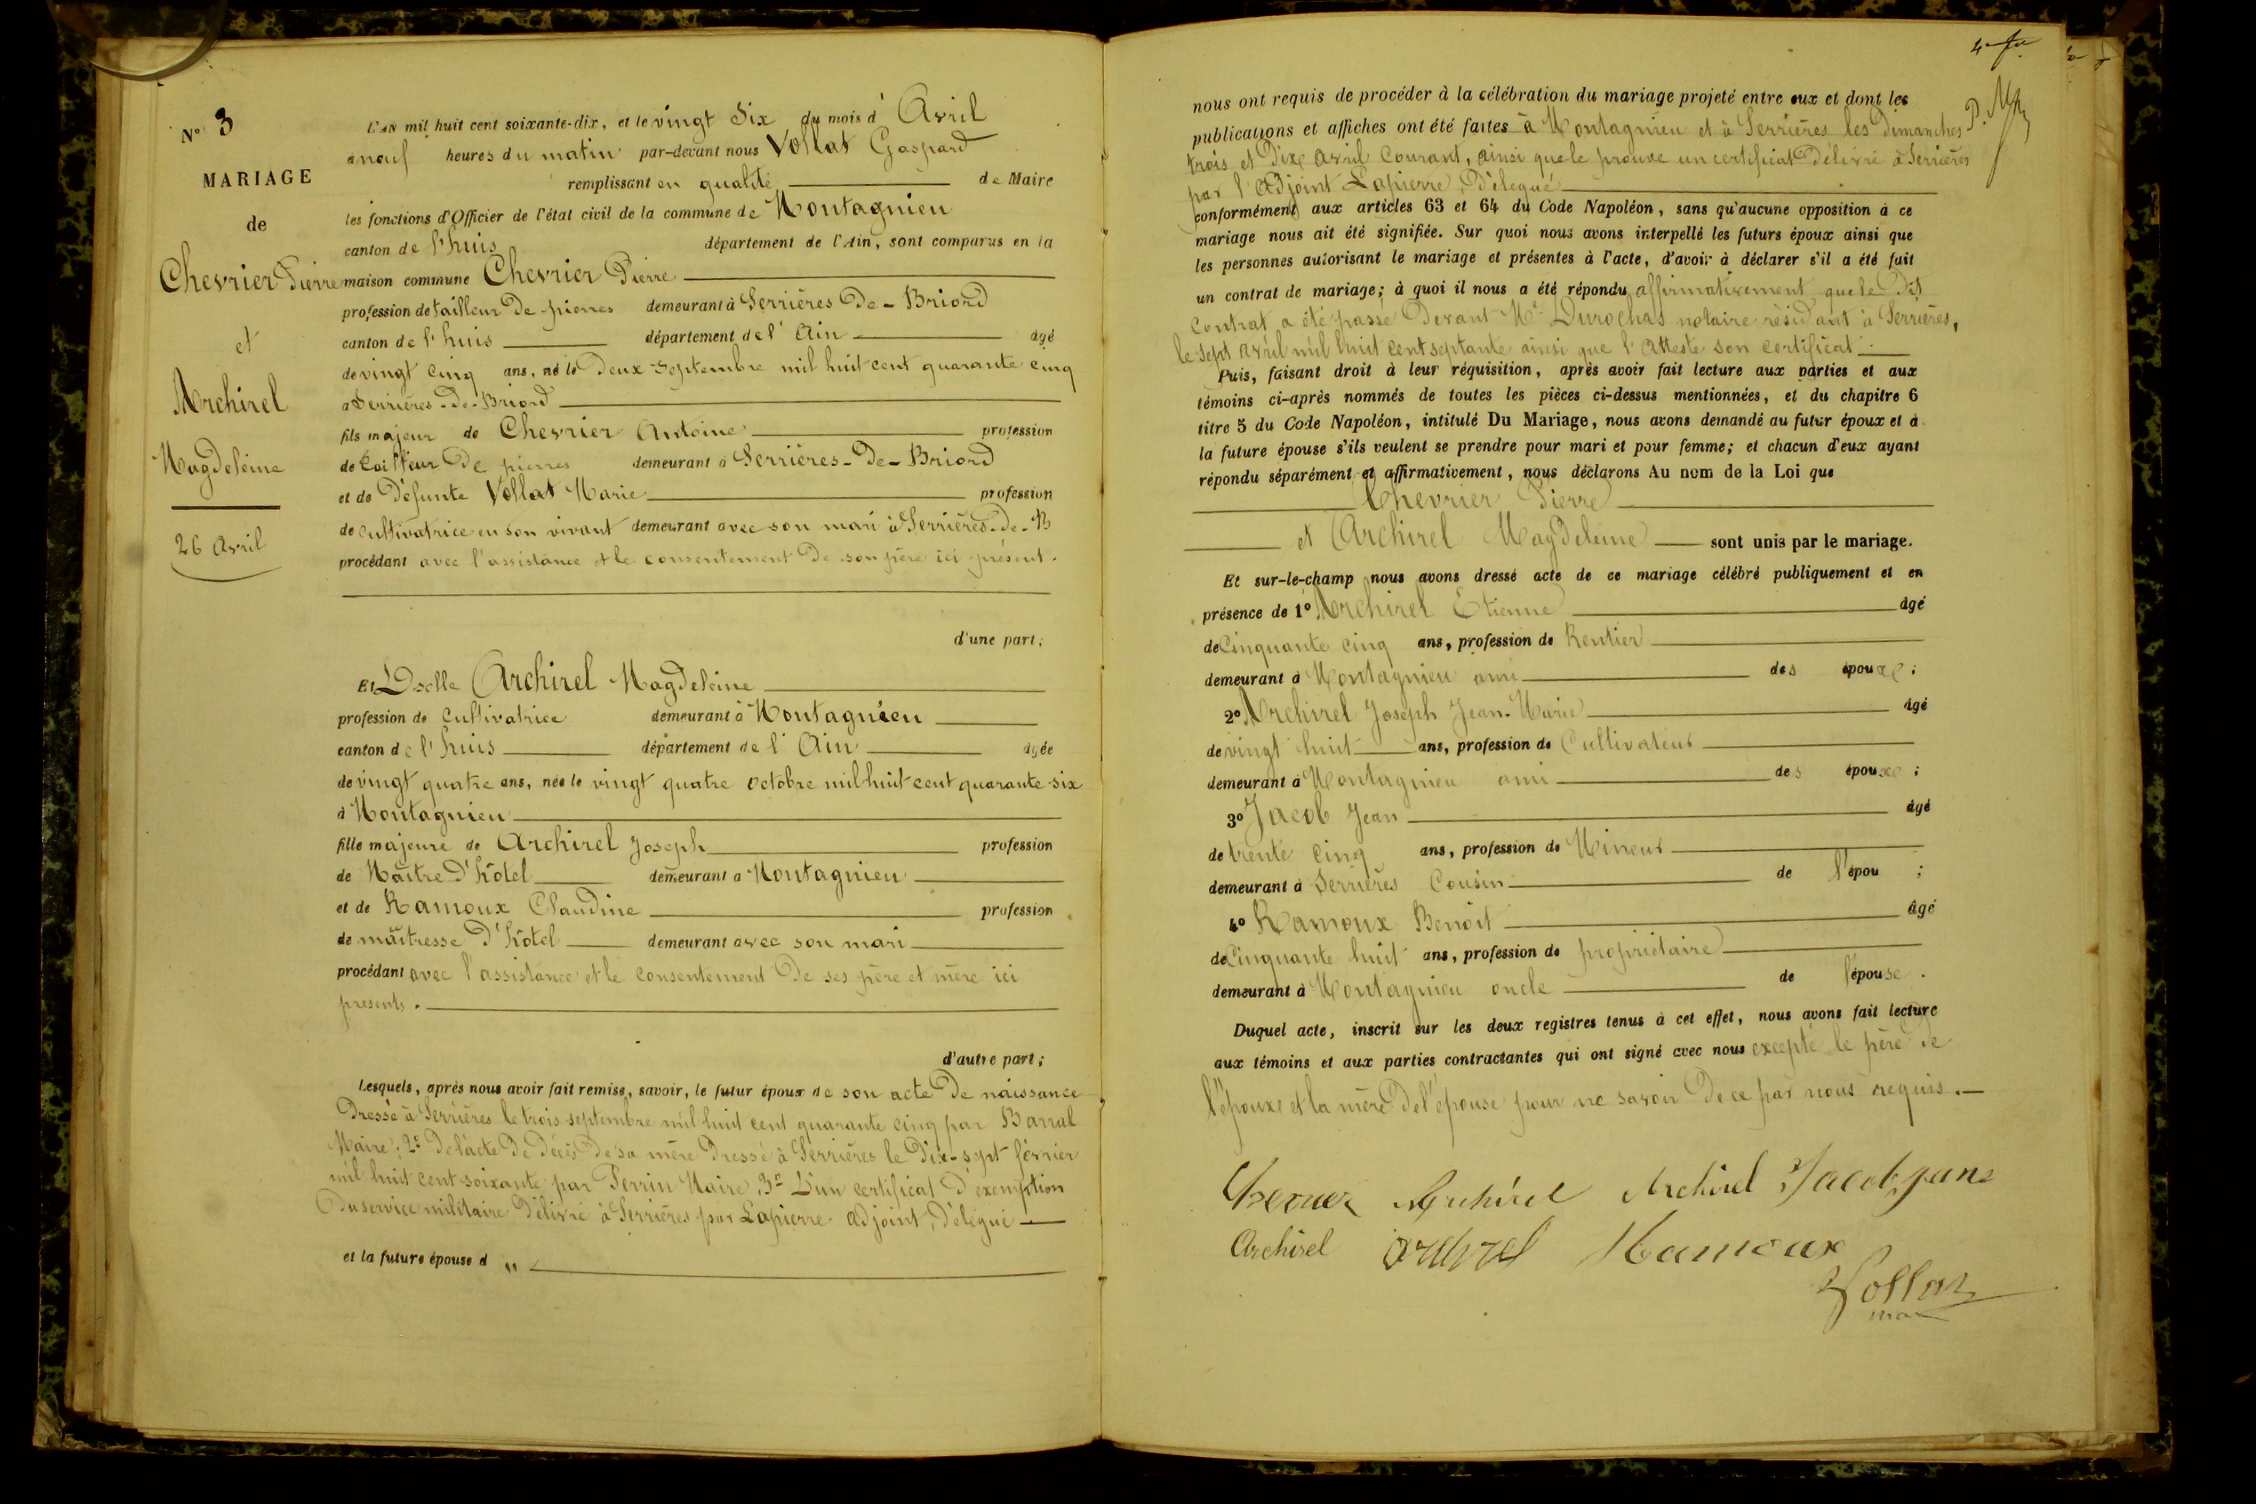 N° 3
MARIAGE
de
Chevrier Pierre
et
Archirel
Magdeleine
26 Avril
L'AN mil huit cent soixante-dix, et le vingt Six du mois d' Avril
a neuf heures du matin par-devant nous Vollat Gaspard
remplissant en qualité de Maire
les fonctions d'Officier de l'état civil de la commune de Montagnieu
canton de l'huis département de l'Ain, sont comparus en la
maison commune Chevrier Pierre
profession de tailleur de pierres demeurant à Serrières De-Briord
canton de l'huis département de l' Ain âgé
de vingt cinq ans, né le Deux Septembre mil huit cent quarante cinq
à Serrières-de-Briord
fils majeur de Chevrier Antoine profession
de tailleur De pierres demeurant à Serrières-De-Briord
et de Défunte Vollat Marie profession
de cultivatrice en son vivant demeurant avec son mari à Serrières-de-B
procédant avec l'assistance et le consentement De son père ici présent.
d'une part;
Et Dselle Archirel Magdeleine
profession de cultivatrice demeurant à Montagnieu
canton de l'huis département de l' Ain âgée
de vingt quatre ans, née le vingt quatre octobre mil huit cent quarante six
à Montagnieu
fille majeure de Archirel Joseph profession
de Maître D'hôtel demeurant à Montagnieu
et de Ramoux Claudine profession
de maîtresse D'hôtel demeurant avec son mari
procédant avec l'assistance et le consentement De ses père et mère ici
présents.
d'autre part;
Lesquels, après nous avoir fait remise, savoir, le futur époux de son acte De naissance
Dressé à Serrières le trois septembre mil huit cent quarante cinq par Barral
Maire; 2° De l'acte De décès De sa mère Dressé à Serrières le Dix-sept février
mil huit cent soixante par Perrin Maire, 3° D'un certificat D'exemption
Du service militaire Délivré à Serrières par Lapierre adjoint, Délégué
et la future épouse d "
nous ont requis de procéder à la célébration du mariage projeté entre eux et dont les
publications et affiches ont été faites à Montagnieu et à Serrières les Dimanches
trois et Dix avril courant, ainsi que le prouve un certificat Délivré à Serrières
par l'Adjoint Lapierre, Délégué
conformément aux articles 63 et 64 du Code Napoléon, sans qu'aucune opposition à ce
mariage nous ait été signifiée. Sur quoi nous avons interpellé les futurs époux ainsi que
les personnes autorisant le mariage et présentes à l'acte, d'avoir à déclarer s'il a été fait
un contrat de mariage; à quoi il nous a été répondu affirmativement que le Dit
Contrat a été passé Devant Me Durochas notaire résidant à Serrières,
le sept avril mil huit cent septante ainsi que l'Atteste son certificat.
Puis, faisant droit à leur réquisition, après avoir fait lecture aux parties et aux
témoins ci-après nommés de toutes les pièces ci-dessus mentionnées, et du chapitre 6
titre 5 du Code Napoléon, intitulé Du Mariage, nous avons demandé au futur époux et à
la future épouse s'ils veulent se prendre pour mari et pour femme; et chacun d'eux ayant
répondu séparément et affirmativement, nous déclarons Au nom de la Loi que
Chevrier Pierre
et Archirel Magdeleine sont unis par le mariage.
Et sur-le-champ nous avons dressé acte de ce mariage célébré publiquement et en
présence de 1° Archirel Etienne âgé
de Cinquante cinq ans, profession de Rentier
demeurant à Montagnieu ami des époux;
2° Archirel Joseph Jean-Marie âgé
de vingt huit ans, profession de Cultivateur
demeurant à Montagnieu ami des époux;
3° Jacob Jean âgé
de trente cinq ans, profession de Mineur
demeurant à Serrières Cousin de l'épou ;
4° Ramoux Benoit âgé
de Cinquante huit ans, profession de propriétaire
demeurant à Montagnieu oncle de l'épouse.
Duquel acte, inscrit sur les deux registres tenus à cet effet, nous avons fait lecture
aux témoins et aux parties contractantes qui ont signé avec nous excepté le père De
l'époux et la mère De l'épouse pour ne savoir De ce par nous requis.
Chevrier Archirel Archirel Jacob jean
Archirel archirel Ramoux
Vollat